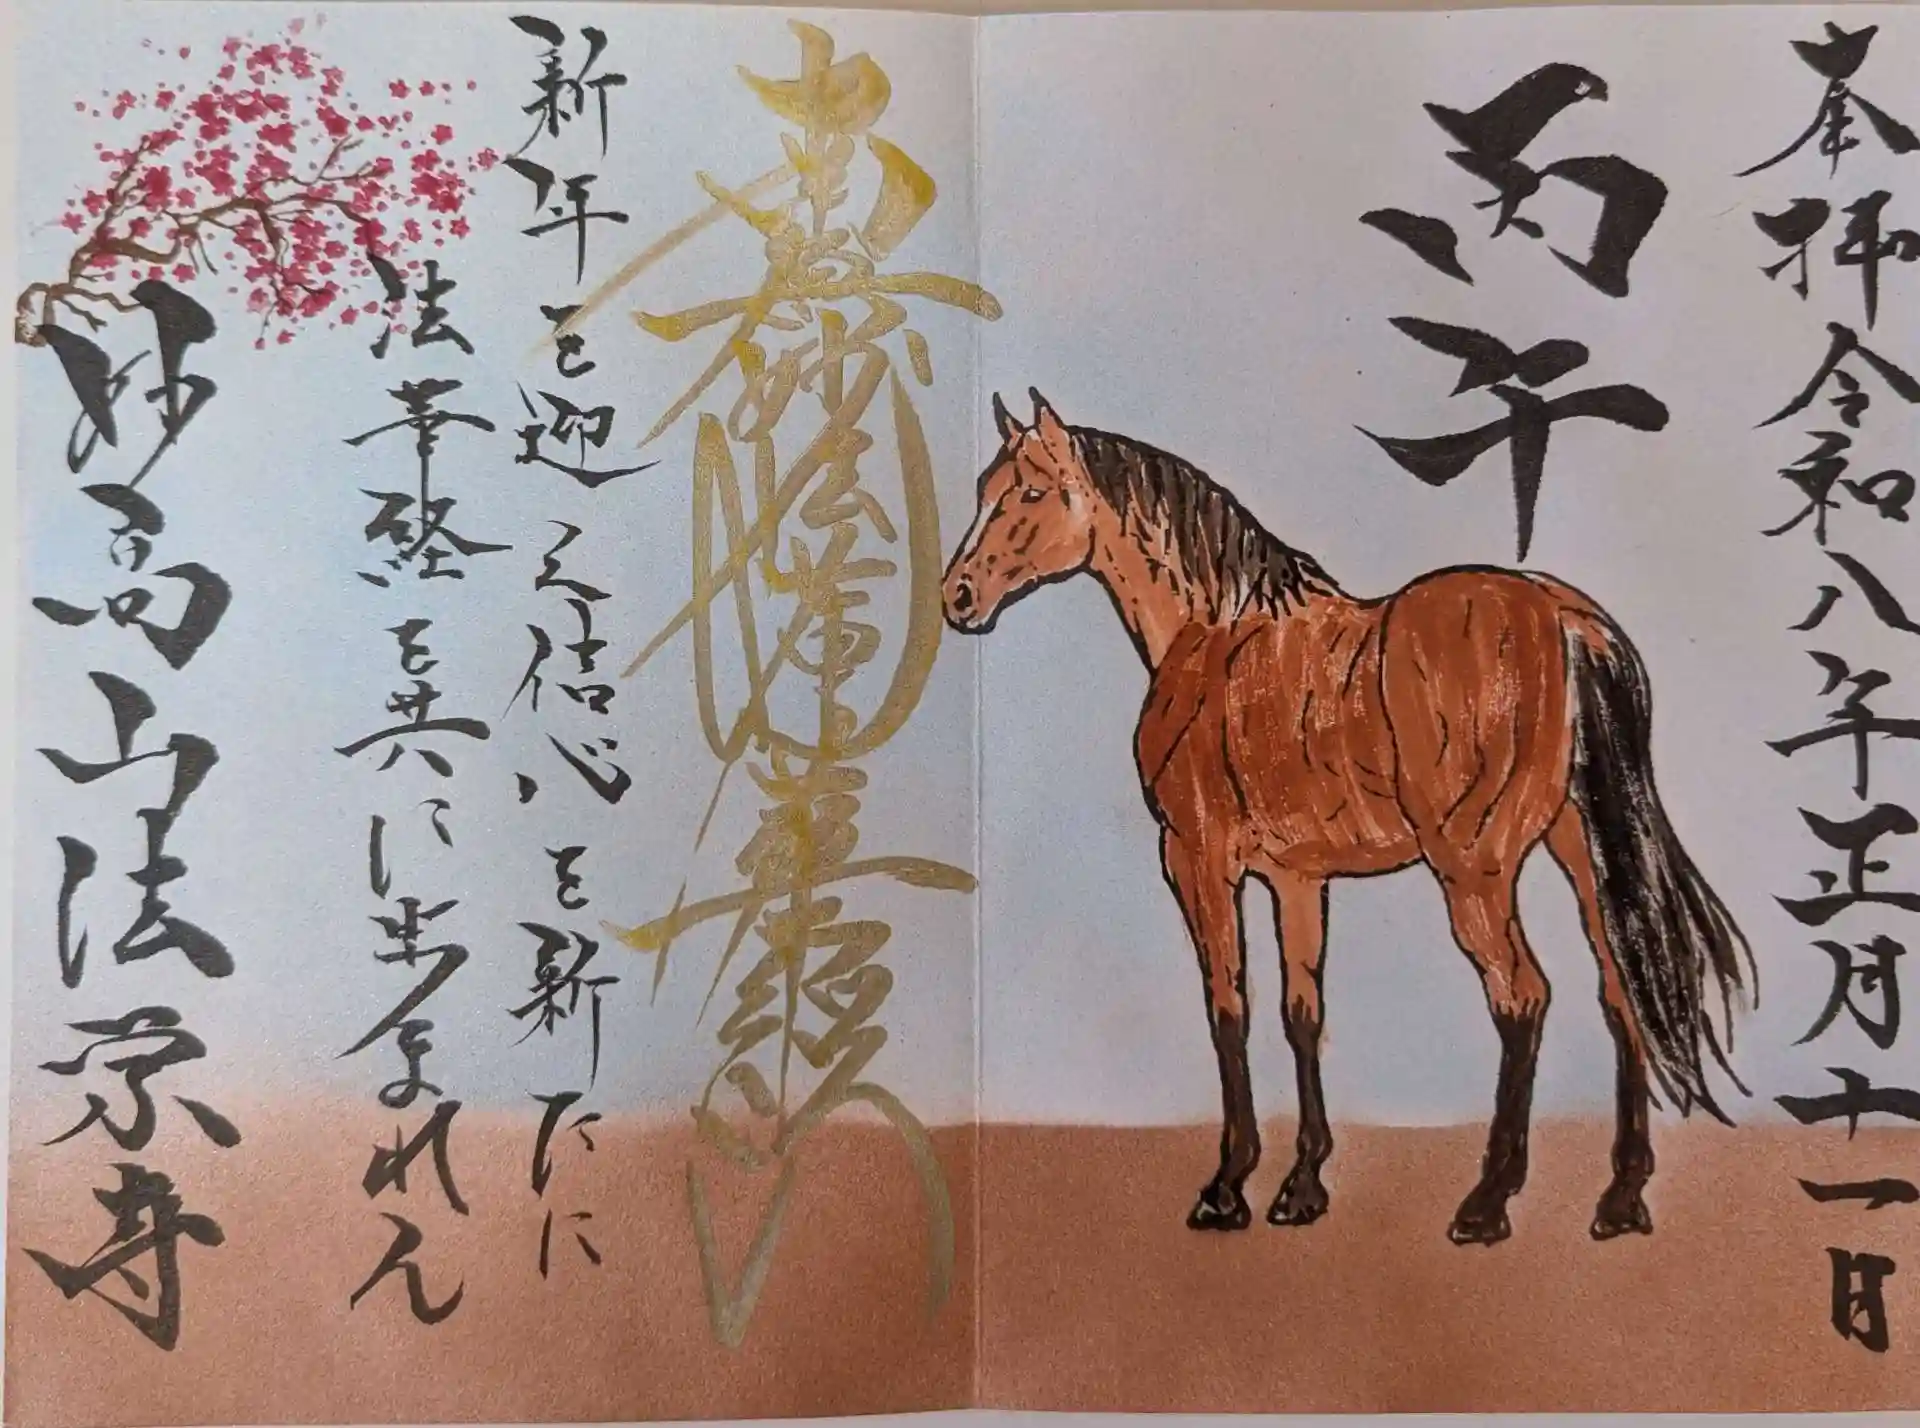 奉拝 令和八年正月十一日
丙午
南無妙法蓮華経
新年を迎え信心を新たに
法華経を共に歩まれん
妙高山法宗寺